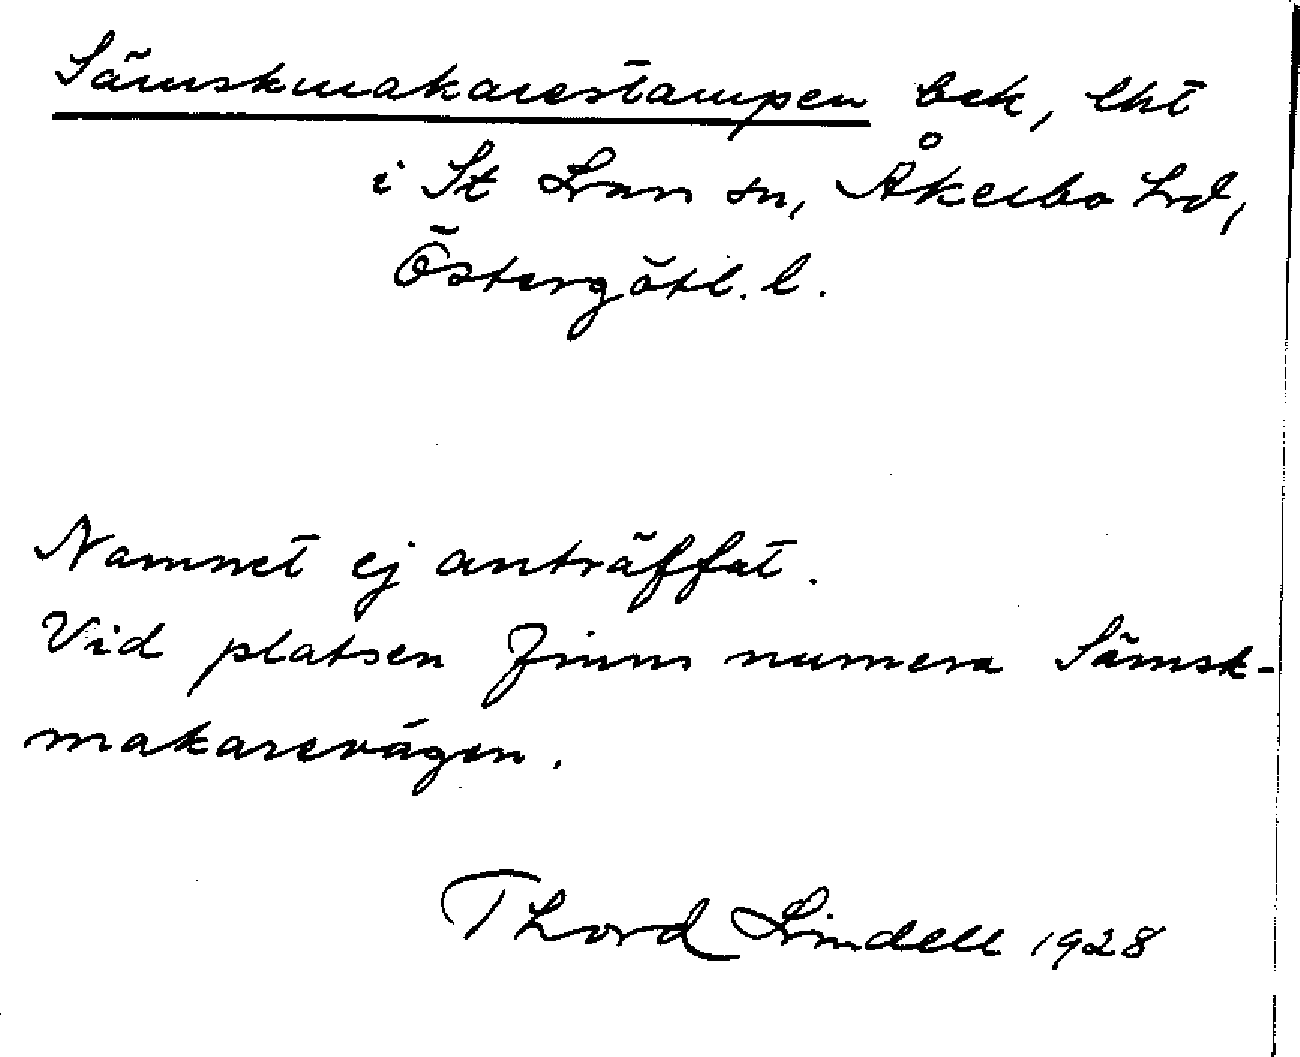 Sämskmakarestampen bek, lht
i St Lars sn, Åkerbo hd,
Östergötl. l.
Namnet ej anträffat.
Vid platsen finns numera Sämsk-
makarevägen.
Thord Lindell 1928